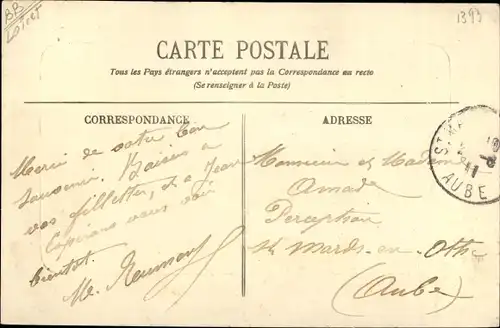 BB
Loiret
1393
CARTE POSTALE
Tous les Pays étrangers n'acceptent pas la Correspondance au recto
(Se renseigner à la Poste)
CORRESPONDANCE
ADRESSE
Merci de votre bon
souvenir. Baisers a
vos fillettes, et a Jean
Espérons vous voir
bientôt.
Monsieur et Madame
Amade
Perception
St Mards-en-Othe
(Aube)
AUBE